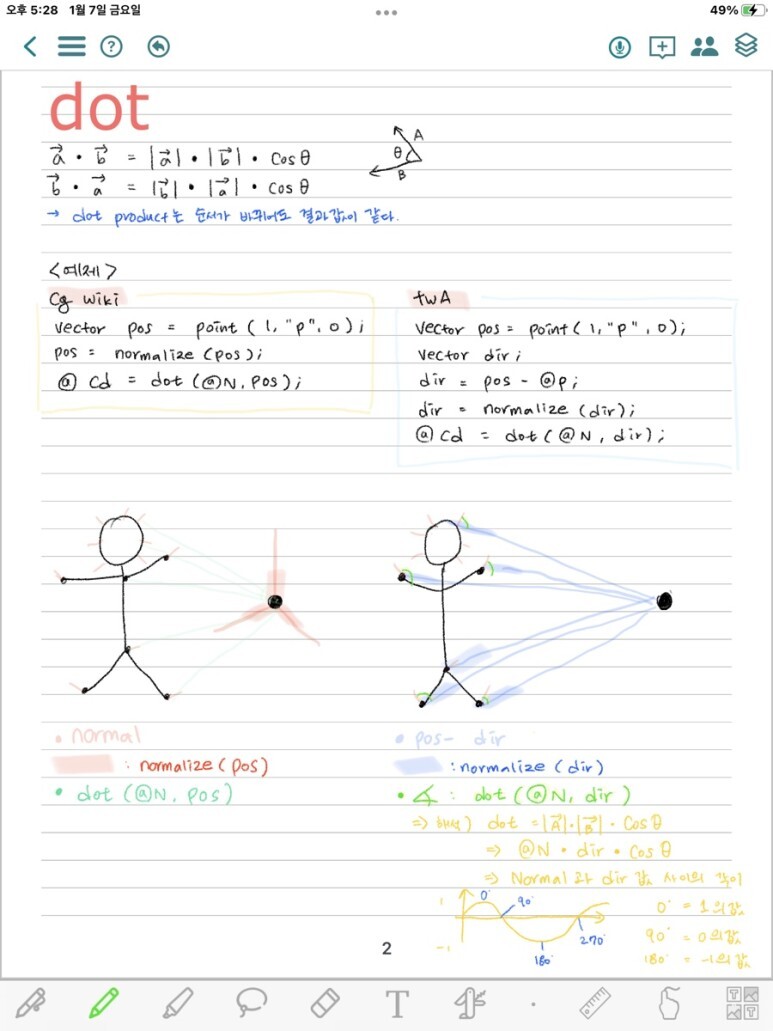 오후 5:28 1월 7일 금요일
49%
dot
a⃗ · b⃗ = |a⃗| · |b⃗| · cosθ
b⃗ · a⃗ = |b⃗| · |a⃗| · cosθ
→ dot product는 순서가 바뀌어도 결과값이 같다.
A
θ
B
<예제>
Cg wiki
vector pos = point(1,"p",0);
pos = normalize(pos);
@Cd = dot(@N, pos);
twA
vector pos = point(1,"p",0);
vector dir;
dir = pos - @p;
dir = normalize(dir);
@Cd = dot(@N, dir);
• normal
: normalize(pos)
• dot(@N, pos)
• pos- dir
: normalize(dir)
• ∡ : dot(@N, dir)
⇒ 해석) dot = |A⃗|·|B⃗| · cosθ
⇒ @N · dir · cosθ
⇒ Normal과 dir 값 사이의 각이
1
-1
0°
90°
180°
270°
0° = 1의값
90° = 0의값
180° = -1의값
2